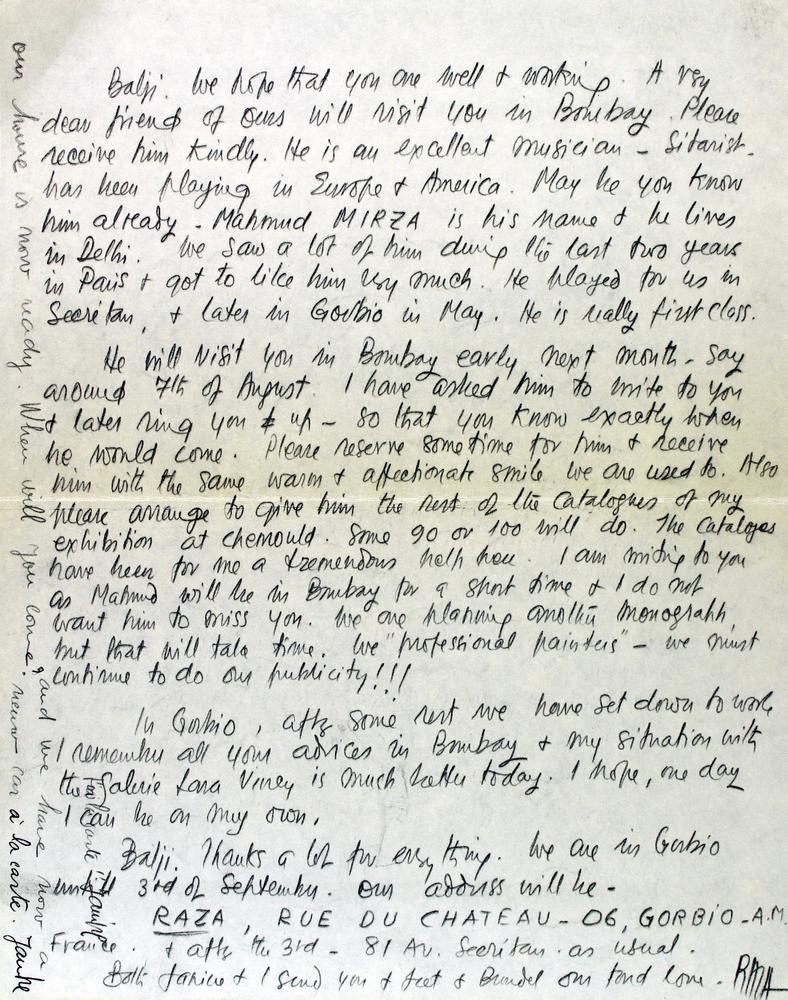 Balji. We hope that you are well & working. A very
dear friend of ours will visit you in Bombay. Please
receive him kindly. He is an excellent musician - Sitarist.
has been playing in Europe & America. May be you know
him already - Mahmud MIRZA is his name & he lives
in Delhi. We saw a lot of him during the last two years
in Paris & got to like him very much. He played for us in
Secrétan, & later in Gorbio in May. He is really first class.
He will visit you in Bombay early next month - say
around 7th of August. I have asked him to write to you
& later ring you up - so that you know exactly when
he would come. Please reserve some time for him & receive
him with the same warm & affectionate smile we are used to. Also
please arrange to give him the rest of the catalogues of my
exhibition at chemould. Some 90 or 100 will do. The cataloges
have been for me a tremendous help here. I am writing to you
as Mahmud will be in Bombay for a short time & I do not
want him to miss you. We are planning another monograph,
but that will take time. We "professional painters" - we must
continue to do our publicity!!!
In Gorbio, after some rest we have set down to work
I remember all your advices in Bombay & my situation with
the Galerie Lara Vincy is much better today. I hope, one day
I can be on my own.
Balji. Thanks a lot for everything. We are in Gorbio
until 3rd of September. Our address will be -
RAZA, RUE DU CHATEAU - 06, GORBIO - A.M.
France. & after the 3rd - 81 Av. Secrétan as usual.
Both Janine & I send you & Jeet & Bundel our fond love. RAZA
our house is now ready. When will you come? and we have now a
à la carte.